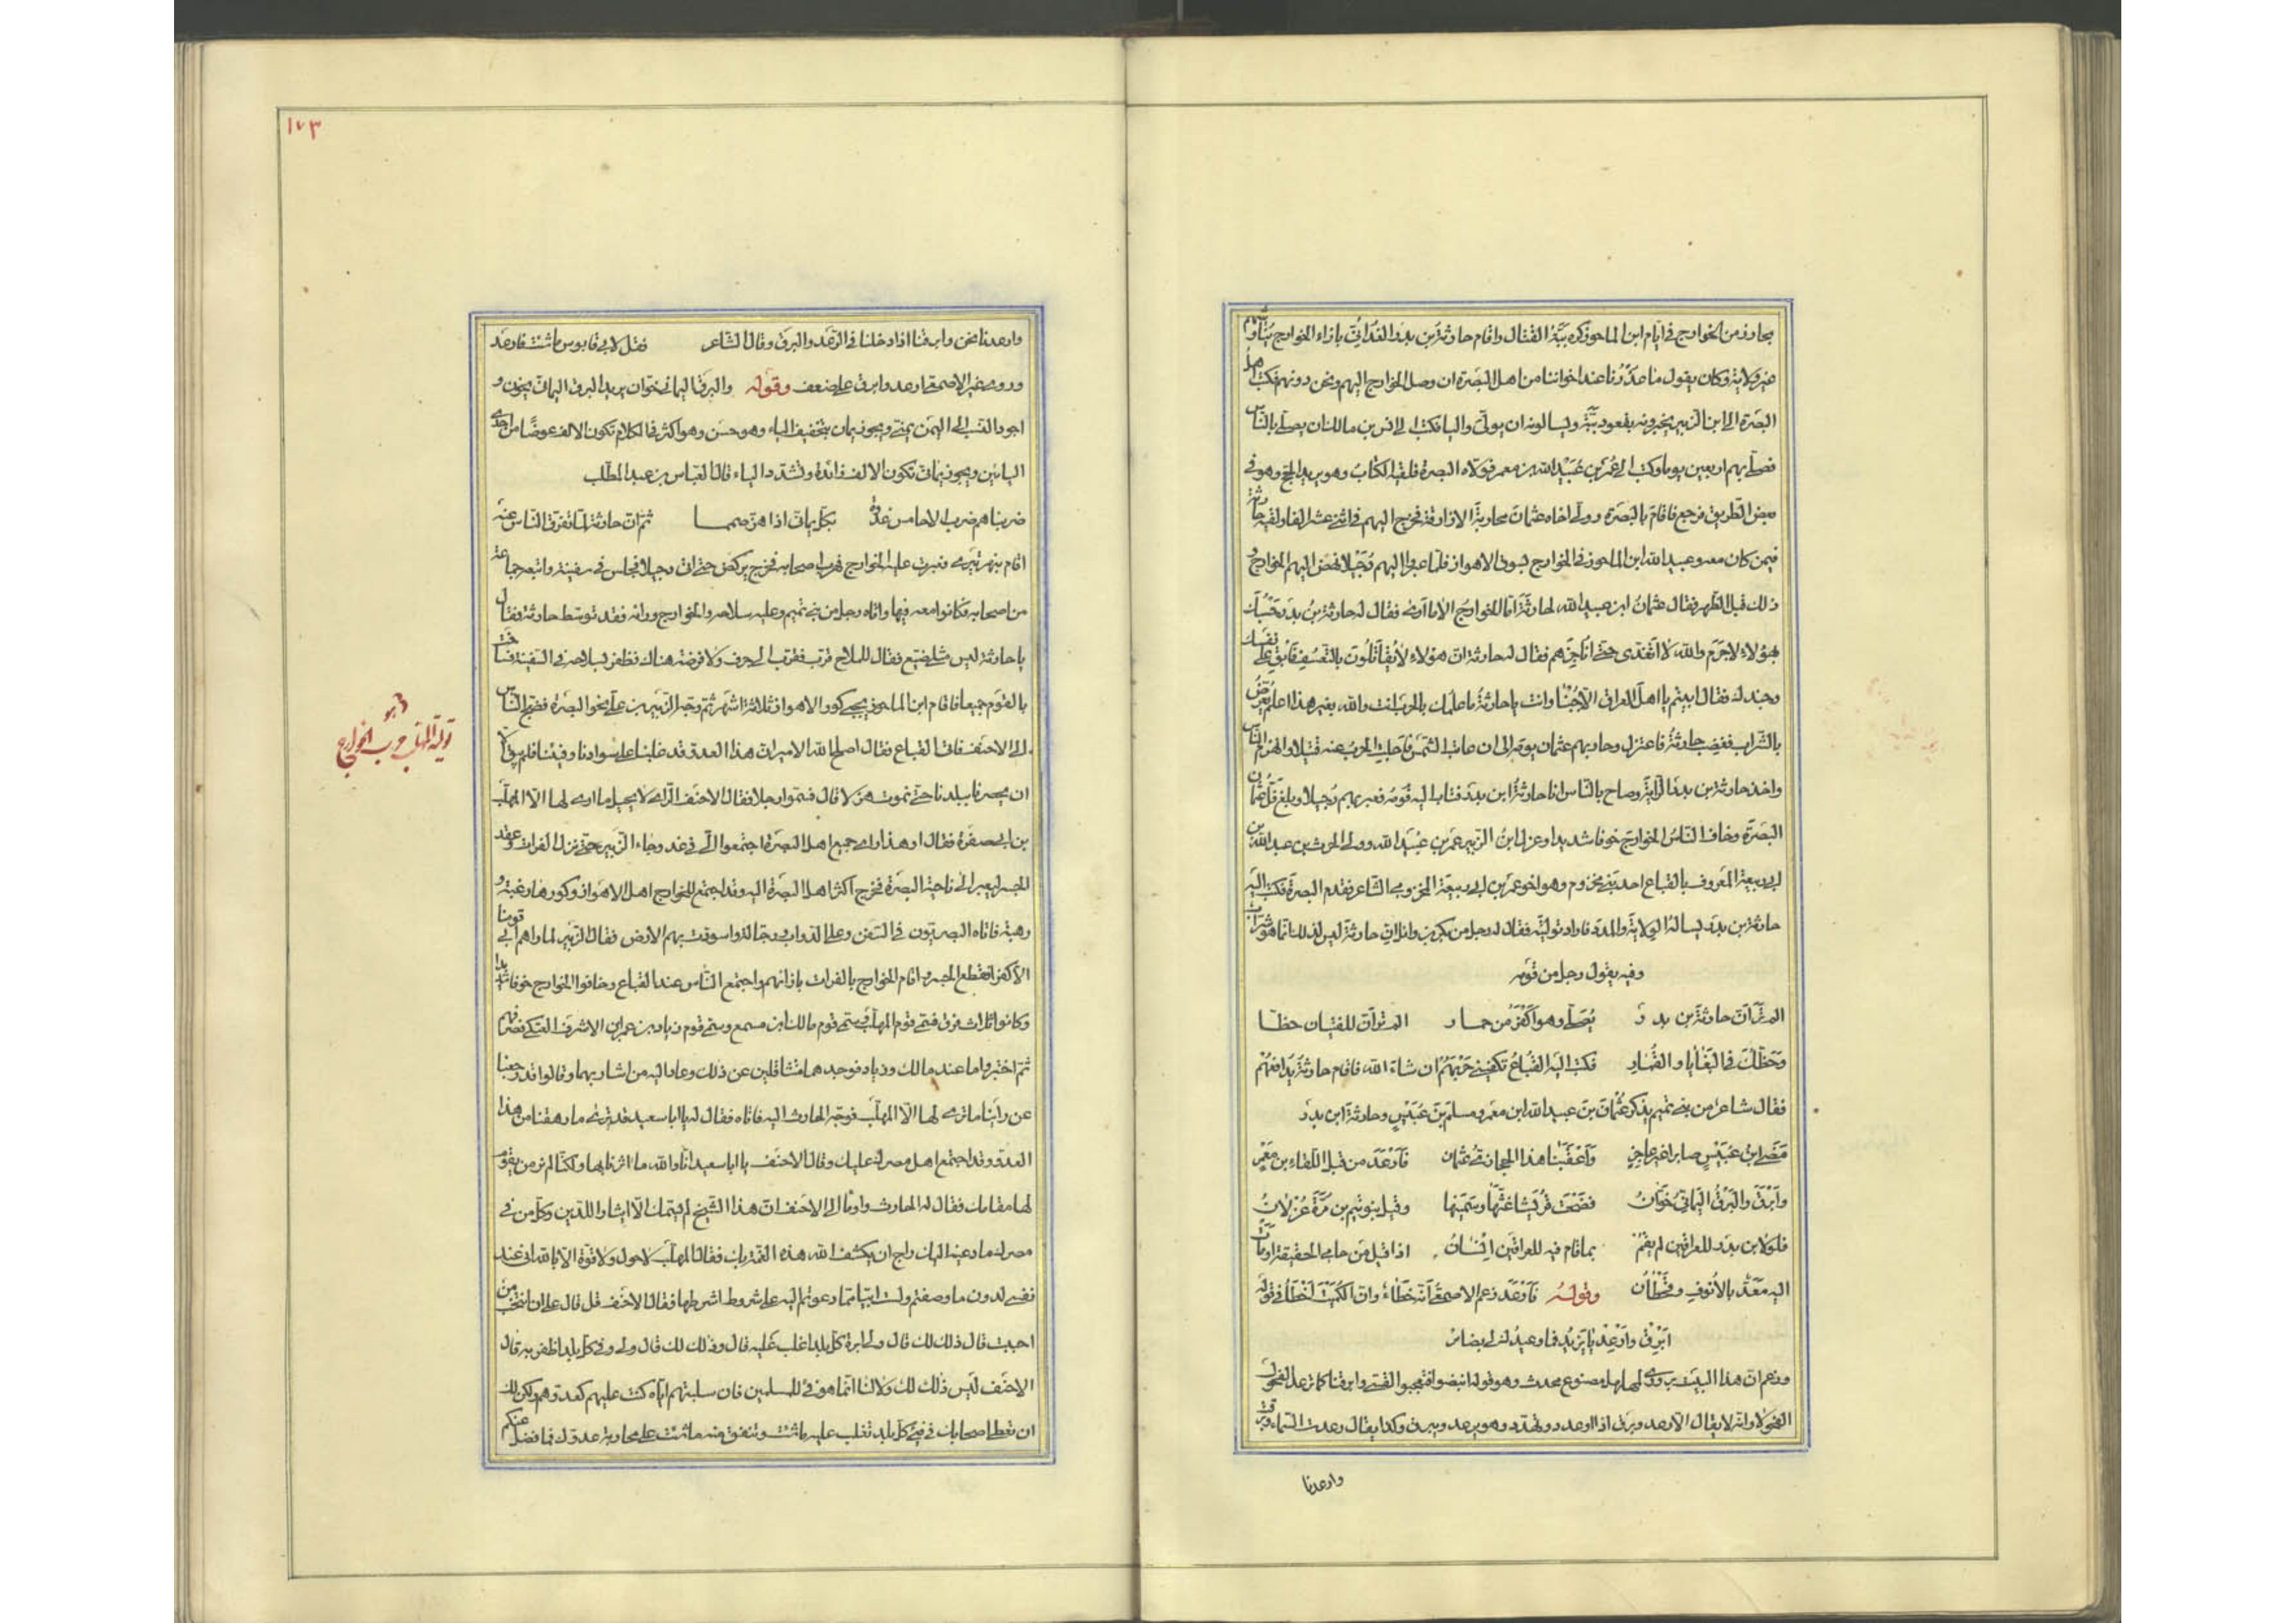 يحاوز من الخوارج في ايام ابن الماحوز كره ببّة القتال واقام حارثة بن بدر الغداني بازاء الخوارج يناوشهم
غير ولاية وكان يقول ما عذرنا عند اخواننا من اهل البصرة ان وصل الخوارج اليهم ونحن دونهم فكتب اهل
البصرة الى ابن الزبير يخبرونه بقعود ببّة ويسالونه ان يولّي واليا فكتب الى انس بن مالك ان يصلّي بالناس
فصلّى بهم اربعين يوما وكتب الى عُمَر بن عُبَيْد الله بن معمر فولاه البصرة فلقيه الكتاب وهو يريد الحج وهو في
بعض الطريق فرجع فاقام بالبصرة وولّى اخاه عثمان محاربة الازارقة فخرج اليهم في اثني عشر الفا ولقيه حارثة
فيمن كان معه وعبيد الله ابن الماحوز في الخوارج بسوق الاهواز فلما عبروا اليهم دُجَيْلا نهض اليهم الخوارج و
ذلك قبل الظهر فقال عثمان ابن عبيد الله لحارثة اما الخوارج الا ما ارى فقال له حارثة بن بدر حَسْبُك
بهؤلاء لاجرم والله لا اتغدّى حتى اناجزهم فقال له حارثة ان هؤلاء لا يُقاتَلُون بالتعسّف فابق على نفسك
وجندك فقال ابيتم يا اهل العراق الا جُبْنا وانت يا حارثة ما علمك بالحرب انت والله بغير هذا اعلم يعرّض
بالشراب فغضب حارثة فاعتزل وحاربهم عثمان يومه الى ان غابت الشمس فاجلت الحرب عنه قتيلا وانهزم الناس
واخذ حارثة بن بدر الراية وصاح بالناس انا حارثة ابن بدر فثاب اليه قومه فعبر بهم دُجيلا وبلغ فلّ عثمان
البصرة وخاف الناسُ الخوارج خوفا شديدا وعزل ابن الزبير عمر بن عبيد الله وولى الحرث بن عبد الله بن
ابي ربيعة المعروف بالقباع احد بني مخزوم وهو اخو عمر بن ابي ربيعة المخزومي الشاعر فقدم البصرة فكتب اليه
حارثة بن بدر يساله الولاية والمدد فاراد توليته فقال له رجل من بكر بن وائل ان حارثة ليس لذلك انما هو شراب
وفيه يقول رجل من قومه
الم ترَ ان حارثة بن بدر يُصلّي وهو اكفر من حمار الم تر ان للفتيان حظّا
وحظّك في البغايا والقمار فكتب اليه القباع تكفيني حربَهم ان شاء الله فاقام حارثة يدافعهم
فقال شاعر من بني تميم يذكر عثمان بن عبيد الله ابن معمر ومسلم بن عُبَيْس وحارثة ابن بدر
مضى ابن عُبَيْس صابرا غير عاجز واعقبنا هذا الحجازي عثمان فارعد من قبل اللقاء بن مَعْمَر
وابرق والبرق اليماني خوّان فضحت قريشا غثّها وسمينها وقيل بنو تيم بن مرّة عُزلان
فلولا بن بدر للعراقين لم يقم بما قام فيه للعراقين انسان اذا قيل من حامى الحقيقة اومات
اليه معدّ بالانوف وقحطان وقوله فارعد زعم الاصمعي انه خطاء وان الكميت اخطأ في قوله
ابرق وارعد يا يزيد فما وعيدك لي بضائر
وزعم ان هذا البيت يروى لمهلهل مصنوع محدث وهو قوله انبضوا معجس القسي وابرقنا كما ترعد الفحول
الفحولا وانه لا يقال الا رعد وبرق اذا اوعد وتهدد وهو يرعد ويبرق وكذا يقال رعدت السماء وبرقت
وارعدنا
١٧٣
وارعدنا نحن وابرقنا اذا دخلنا في الرعد والبرق وقال الشاعر فقل لابي قابوس ما شئت فارعد
وروى غير الاصمعي ارعد وابرق على ضعف وقوله والبرق اليماني خوان يريد البرق اليماني يخون و
اجود النسب الى اليمن يمني ويجوز يمان بتخفيف الياء وهو حسن وهو اكثر في الكلام تكون الالف عوضا من احدى
اليائين ويجوز يماني تكون الالف زائدة وتشدد الياء قال العباس بن عبد المطلب
ضربناهم ضرب الاحامس غدوة بكل يماني اذا هزّ صمما ثم ان حارثة لما تفرق الناس عنه
اقام بنهر تيرى فعبرت عليه الخوارج فهرب اصحابه فخرج يركض حتى اتى دجيلا فجلس في سفينة واتبعه جماعة
من اصحابه فكانوا معه فيها واتاه رجل من بني تميم وعليه سلاحه والخوارج وراءه فقد توسط حارثة فقال
يا حارثة ليس مثلي ضيع فقال للملاح قرب فقرب الى جرف ولا فرضة هناك فطفر بسلاحه في السفينة فساخت
بالقوم جميعا فاقام ابن الماحوز يجبي كور الاهواز ثلاثة اشهر ثم وجه الزبير بن علي نحو البصرة فضجّ الناس
الى الاحنف فاتى القباع فقال اصلح الله الامير ان هذا العدو قد غلبنا على سوادنا وفيئنا فلم يبق الا
ان يحصرنا ببلدنا حتى نموت هزلا قال فسموا رجلا فقال الاحنف الراي لا يخيل ما ارى لها الا المهلب
بن ابي صفرة فقال او هذا راى جميع اهل البصرة اجتمعوا الي في غد وجاء الزبير حتى نزل الفرات وعقد
الجسر ليعبر الى ناحية البصرة فخرج اكثر اهل البصرة اليه وقد اجتمع للخوارج اهل الاهواز وكورها رغبة و
رهبة فاتاه البصريون في السفن وعلى الدواب ورجالة فاسودت بهم الارض فقال الزبير لما راهم ابى قومنا
الا كفرا فقطع الجسر واقام الخوارج بالفرات بازائهم واجتمع الناس عند القباع وخافوا الخوارج خوفا شديدا
وكانوا ثلاث فرق فسمى قوم المهلب وسمى قوم مالك ابن مسمع وسمى قوم زياد بن عمرو ابن الاشرف العتكي فصرفهم
ثم اختبر ما عند مالك وزياد فوجدهما متثاقلين عن ذلك وعاد اليه من اشار بهما وقالوا قد رجعنا
عن راينا ما نرى لها الا المهلب فوجه الحارث اليه فاتاه فقال له يا ابا سعيد قد ترى ما رهقنا من هذا
العدو وقد اجتمع اهل مصرك عليك وقال الاحنف يا ابا سعيد انا والله ما اثرناك بها ولكنا لم نر من يقوم
لها مقامك فقال له الحارث واومأ الى الاحنف ان هذا الشيخ لم يسمك الا ايثارا للدين وكل من في
مصرك ماد عينه اليك راج ان يكشف الله هذه الغمة بك فقال المهلب لا حول ولا قوة الا بالله اني عند
نفسي لدون ما وصفتم ولست ابيا ما دعوتم اليه على شروط اشرطها فقال الاحنف قل قال على ان انتخب من
احببت قال ذلك لك قال ولي امرة كل بلد اغلب عليه قال وذلك لك قال ولي وفي كل بلد اظفر به قال
الاحنف ليس ذلك لك ولا لنا انما هو فئ للمسلمين فان سلبتهم اياه كنت عليهم كعدوهم ولكن لك
ان تعطي اصحابك في فئ كل بلد تغلب عليه ما شئت وتنفق منه ما شئت على محاربة عدوك فما فضل عنكم
تولية المهلب حرب الخوارج